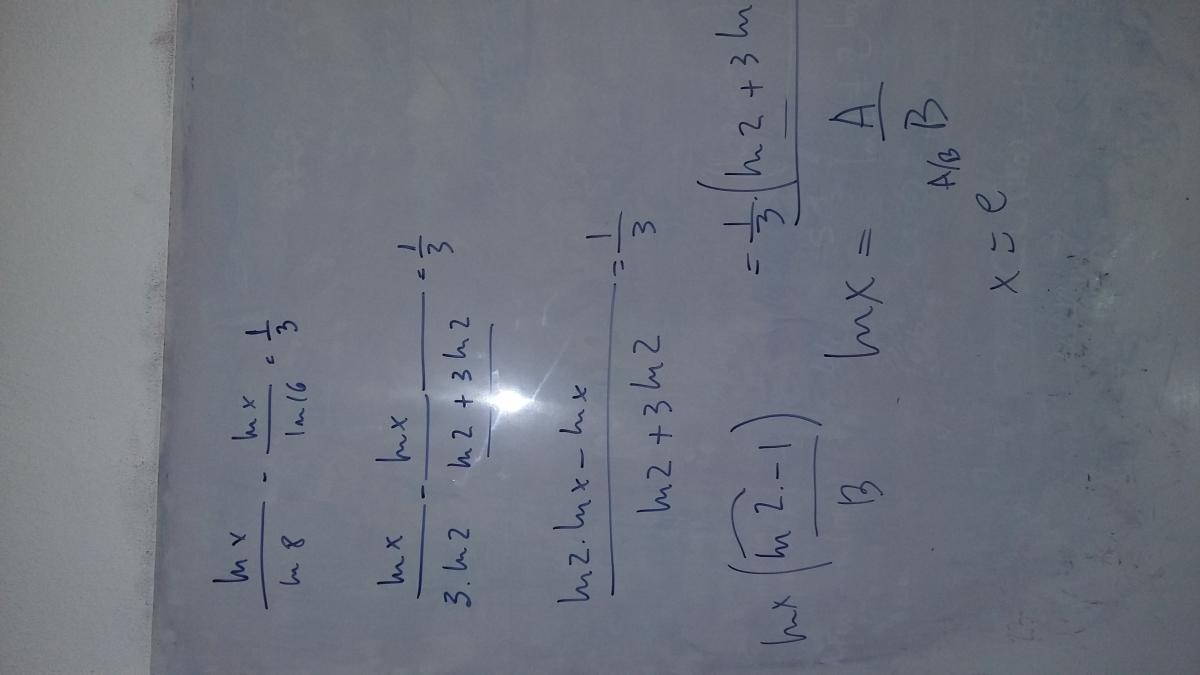 ln x / ln 8 - ln x / ln 16 = 1/3
ln x / 3·ln 2 - ln x / ln 2 + 3 ln 2 = 1/3
ln 2·ln x - ln x / ln 2 + 3 ln 2 = 1/3
ln x (ln 2·-1) = 1/3·(ln 2 + 3 ln
B
ln x = A / B
x = e^A/B